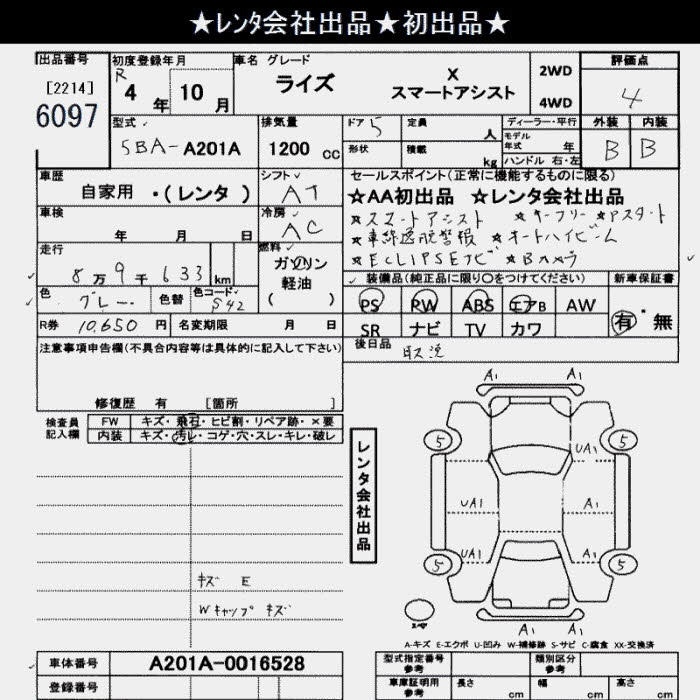 ★レンタ会社出品★初出品★
出品番号
[2214]
6097
初度登録年月
R 4 年 10 月
車名 グレード
ライズ
X
スマートアシスト
2WD
4WD
評価点
4
外装 内装
B B
型式
5BA- A201A
排気量
1200 cc
ドア 5
定員 人
形状
積載 kg
ディーラー・平行
モデル年式 年
ハンドル 右・左
車歴
自家用 ・(レンタ )
シフト
AT
セールスポイント(正常に機能するものに限る)
☆AA初出品 ☆レンタ会社出品
★スマートアシスト ★キーフリー ★Pスタート
★車線逸脱警報 ★オートハイビーム
★ECLIPSEナビ ★Bカメラ
車検
年 月 日
冷房
AC
走行
8万9千633 km
燃料
ガソリン
軽油
( )
色
グレー
色替
色コード
S42
装備品(純正品に限り○をつけてください)
PS PW ABS エアB AW
SR ナビ TV カワ
新車保証書
有・無
R券 10,650 円
名変期限 月 日
後日品
取説
注意事項申告欄(不具合内容等は具体的に記入して下さい)
修復歴 有 [箇所 ]
検査員記入欄
FW キズ・飛石・ヒビ割・リペア跡・×要
内装 キズ・汚レ・コゲ・穴・スレ・キレ・破レ
キズ E
Wキャップ キズ
レンタ会社出品
A1 A1
5 5
UA1
UA1 A1
UA1 A1
5 5
A1 A1
スペア
A-キズ E-エクボ U-凹み W-補修跡 S-サビ C-腐食 XX-交換済
車体番号
A201A-0016528
登録番号
型式指定番号 参考
類別区分 参考
車庫証明用 参考
長さ cm
幅 cm
高さ cm